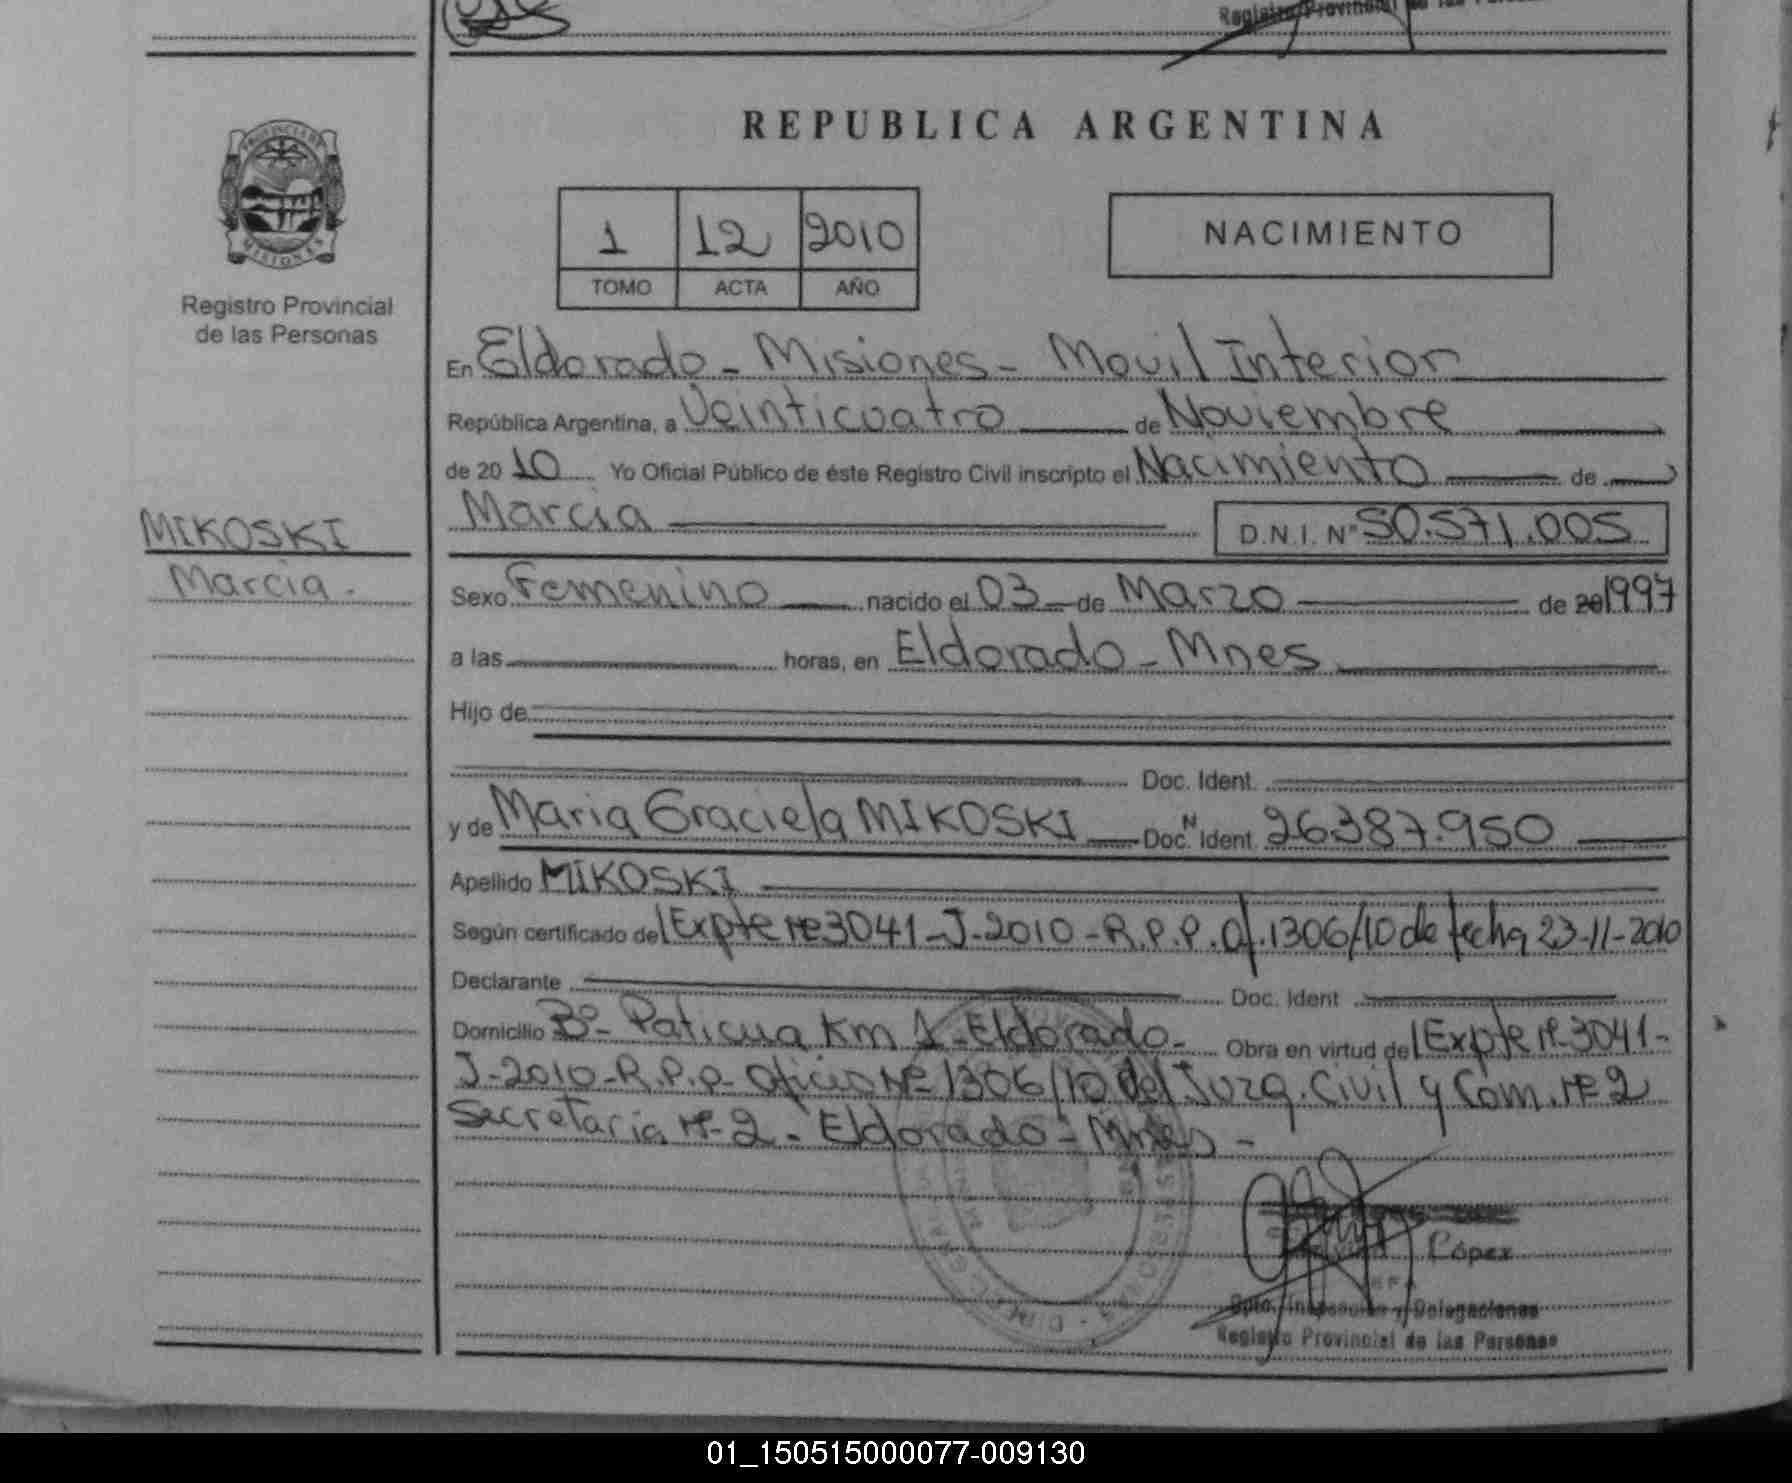 Registro Provincial de las Personas
REPUBLICA ARGENTINA
PROVINCIA DE
MISIONES
Registro Provincial
de las Personas
1 12 2010
TOMO ACTA AÑO
NACIMIENTO
En Eldorado - Misiones - Movil Interior
República Argentina, a Veinticuatro de Noviembre
de 20 10 Yo Oficial Público de éste Registro Civil inscripto el Nacimiento de
Marcia D.N.I. Nº 50.571.005
MIKOSKI
Marcia -
Sexo Femenino nacido el 03 de Marzo de 20 1997
a las horas, en Eldorado - Mnes
Hijo de
Doc. Ident.
y de Maria Graciela MIKOSKI Doc. N Ident. 26387.950
Apellido MIKOSKI
Según certificado del Expte Nº 3041-J-2010-R.P.P. Of. 1306/10 de fecha 23-11-2010
Declarante Doc. Ident
Domicilio Bº- Paticua Km 1 - Eldorado - Obra en virtud del Expte Nº 3041-
J-2010-R.P.P- Oficio Nº 1306/10 del Juzg. Civil y Com. Nº 2
Secretaria Nº 2 - Eldorado - Mnes -
López
Dpto. Inspección y Delegaciones
Registro Provincial de las Personas
01_150515000077-009130